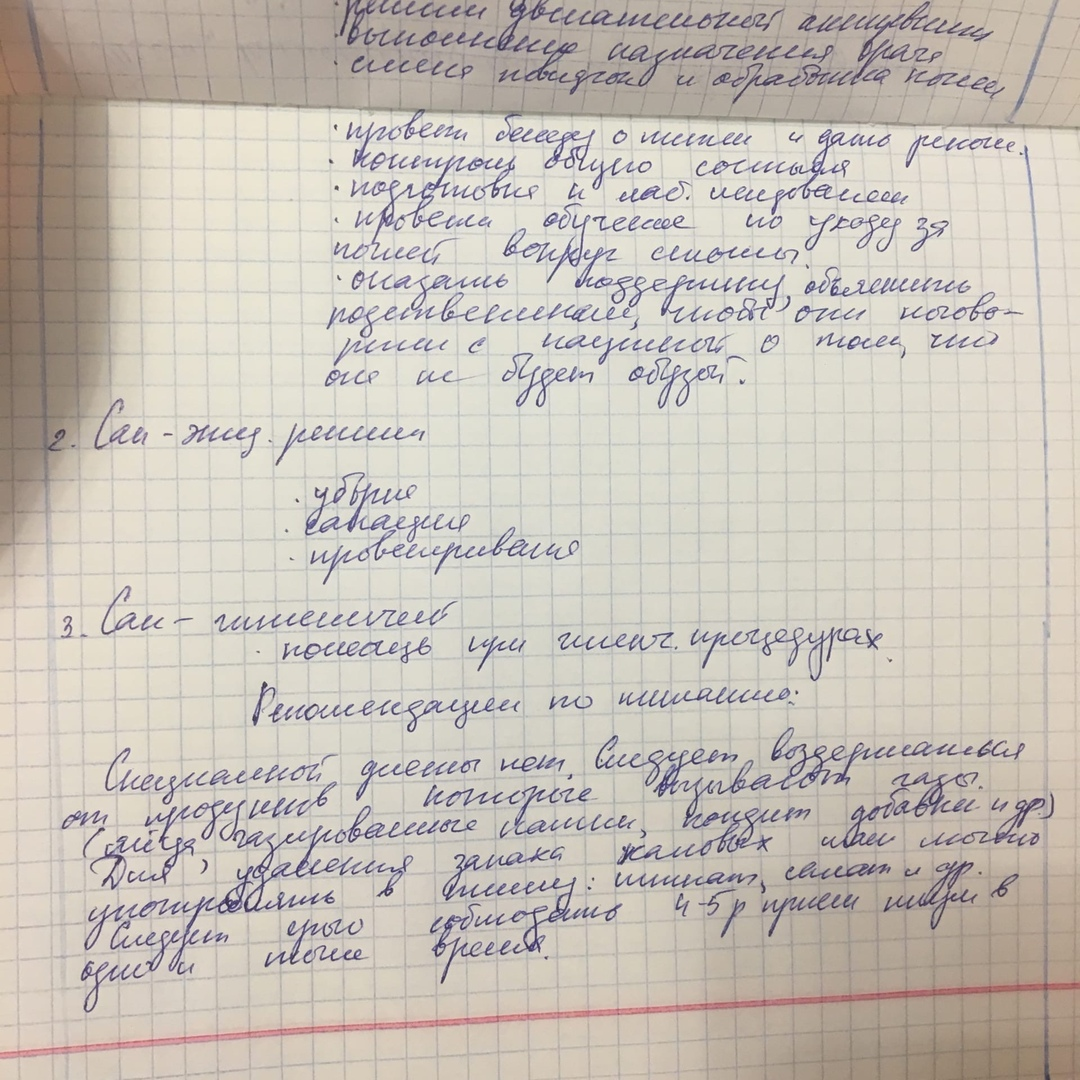 режим двигательной активности
· выполнение назначения врача
· смена повязки и обработка кожи
· провести беседу о питании и дать реком.
· контроль общего состояния
· подготовка к лаб. исследованиям
· провести обучение по уходу за
кожей вокруг стомы
· оказать поддержку, объяснить
родственникам, чтобы они погово-
рили с пациенткой о том, что
она не будет обузой.
2. Сан-эпид. режим
· уборка
· санация
· проветривание
3. Сан-гигиенический
· помощь при гигиенич. процедурах.
Рекомендации по питанию:
Специальной диеты нет. Следует воздержаться
от продуктов которые вызывают газы.
(яйца, газированные напитки, кондит добавки и др.)
Для удаления запаха каловых масс можно
употреблять в пищу: шпинат, салат и др.
Следует строго соблюдать 4-5 р прием пищи в
одно и тоже время.